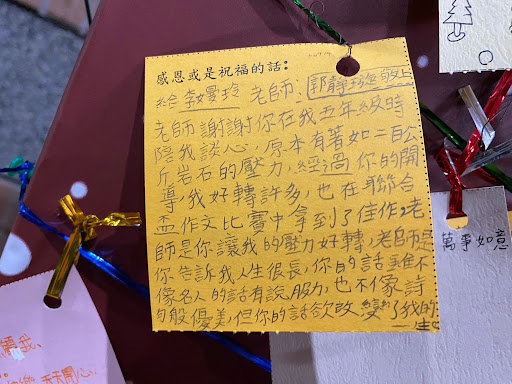 感恩或是祝福的話:
給 李嫚玲 老師: 郭靜璇敬上
老師謝謝你在我五年級時
陪我談心,原本有著如二百公
斤岩石的壓力,經過你的開
導,我好轉許多,也在聯合
盃作文比賽中拿到了佳作,老
師是你讓我的壓力好轉,老師是
你告訴我人生很長,你的話雖不
像名人的話有說服力,也不像詩
句般優美,但你的話欲改變了我的
一生
萬事如意